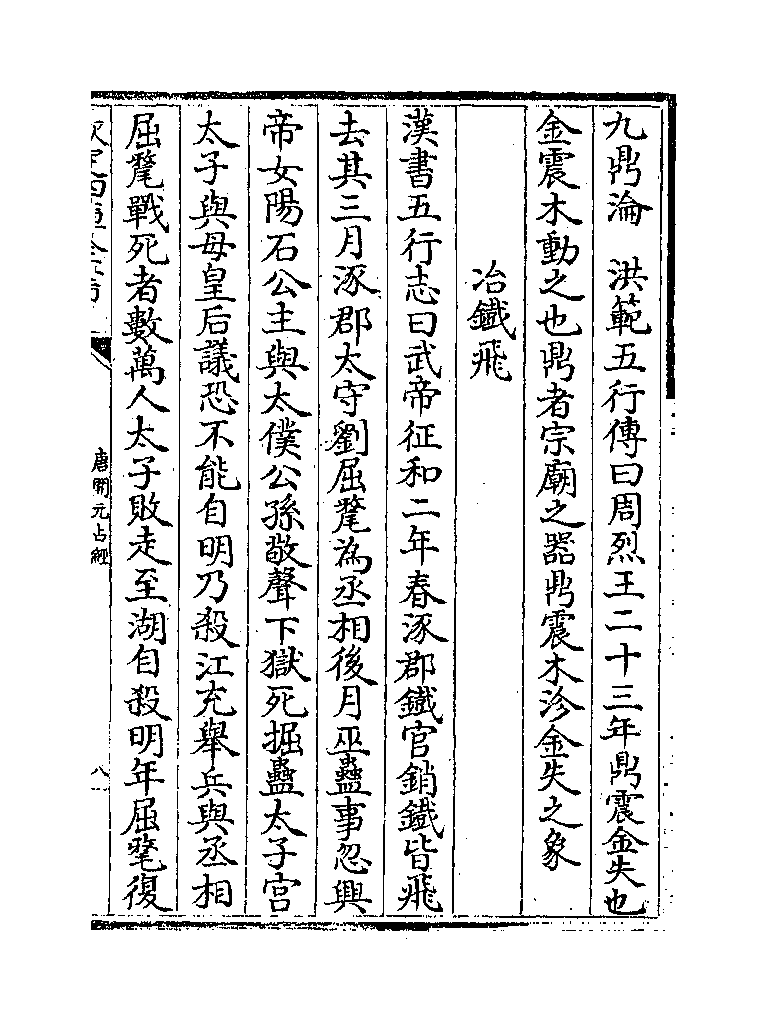 九鼎淪　洪範五行傳曰周烈王二十三年鼎震金失也
金震木動之也鼎者宗廟之器鼎震木沴金失之象
冶鐵飛
漢書五行志曰武帝征和二年春涿郡鐵官銷鐵皆飛
去其三月涿郡太守劉屈氂為丞相後月巫蠱事忽興
帝女陽石公主與太僕公孫敬聲下獄死掘蠱太子宫
太子與母皇后議恐不能自明乃殺江充舉兵與丞相
屈氂戰死者數萬人太子敗走至湖自殺明年屈氂復
唐開元占經
八